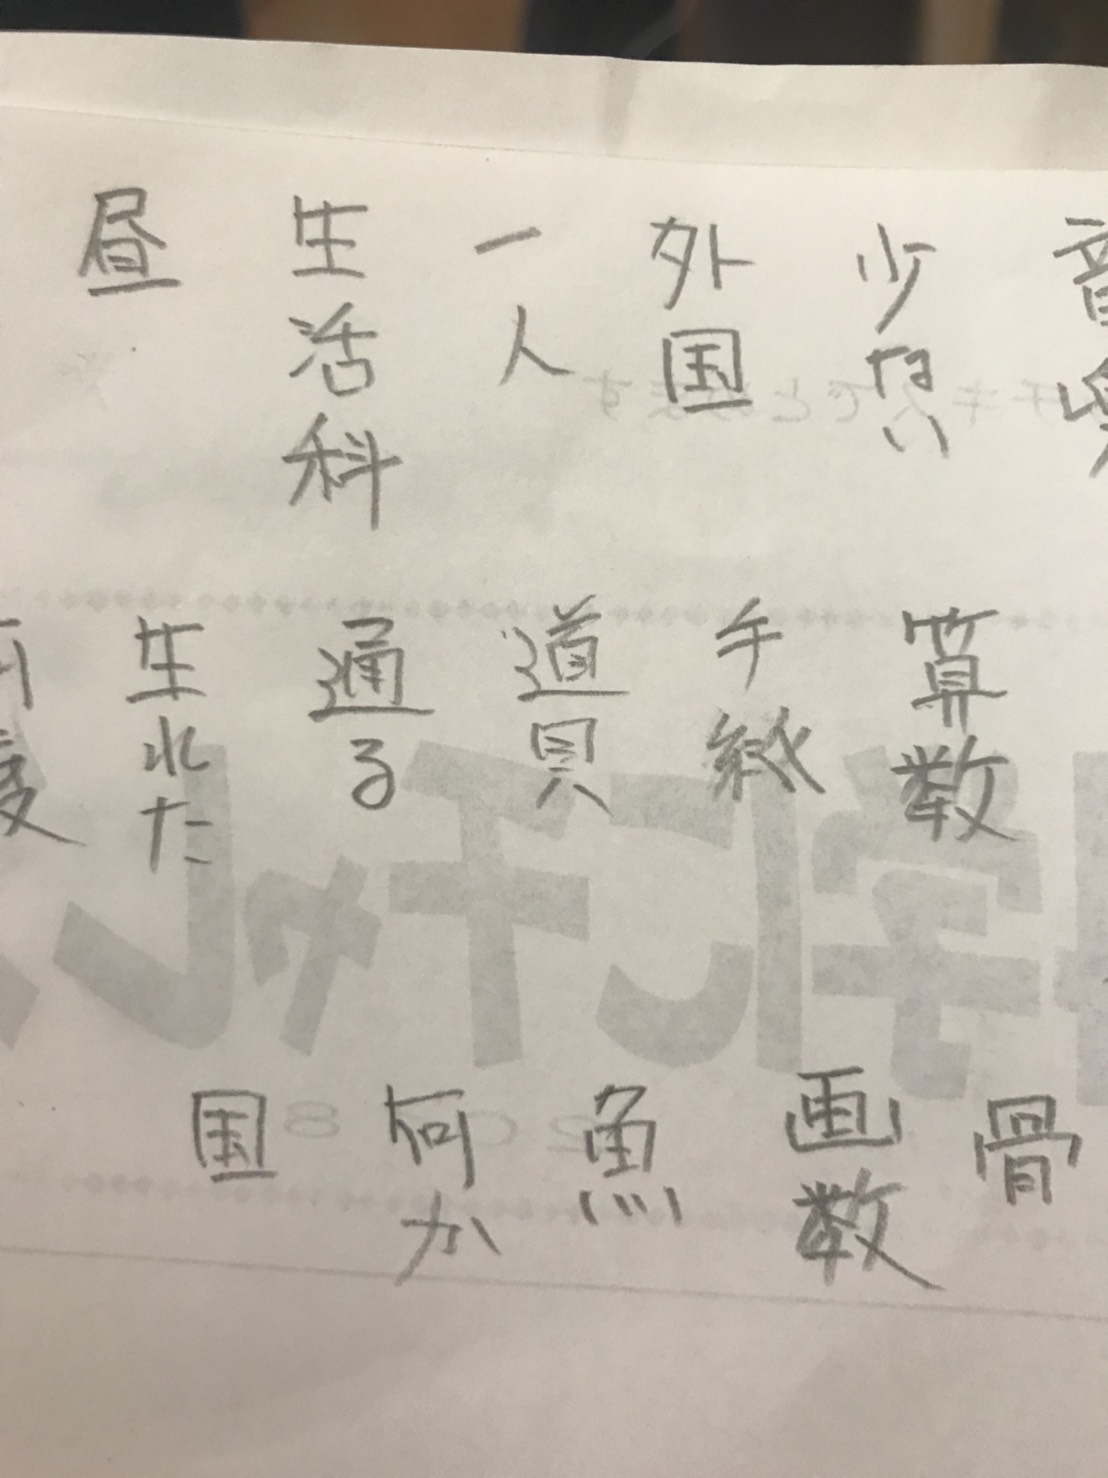 少ない
外国
一人
生活科
昼
算数
手紙
道具
通る
生れた
骨
画数
魚
何か
国